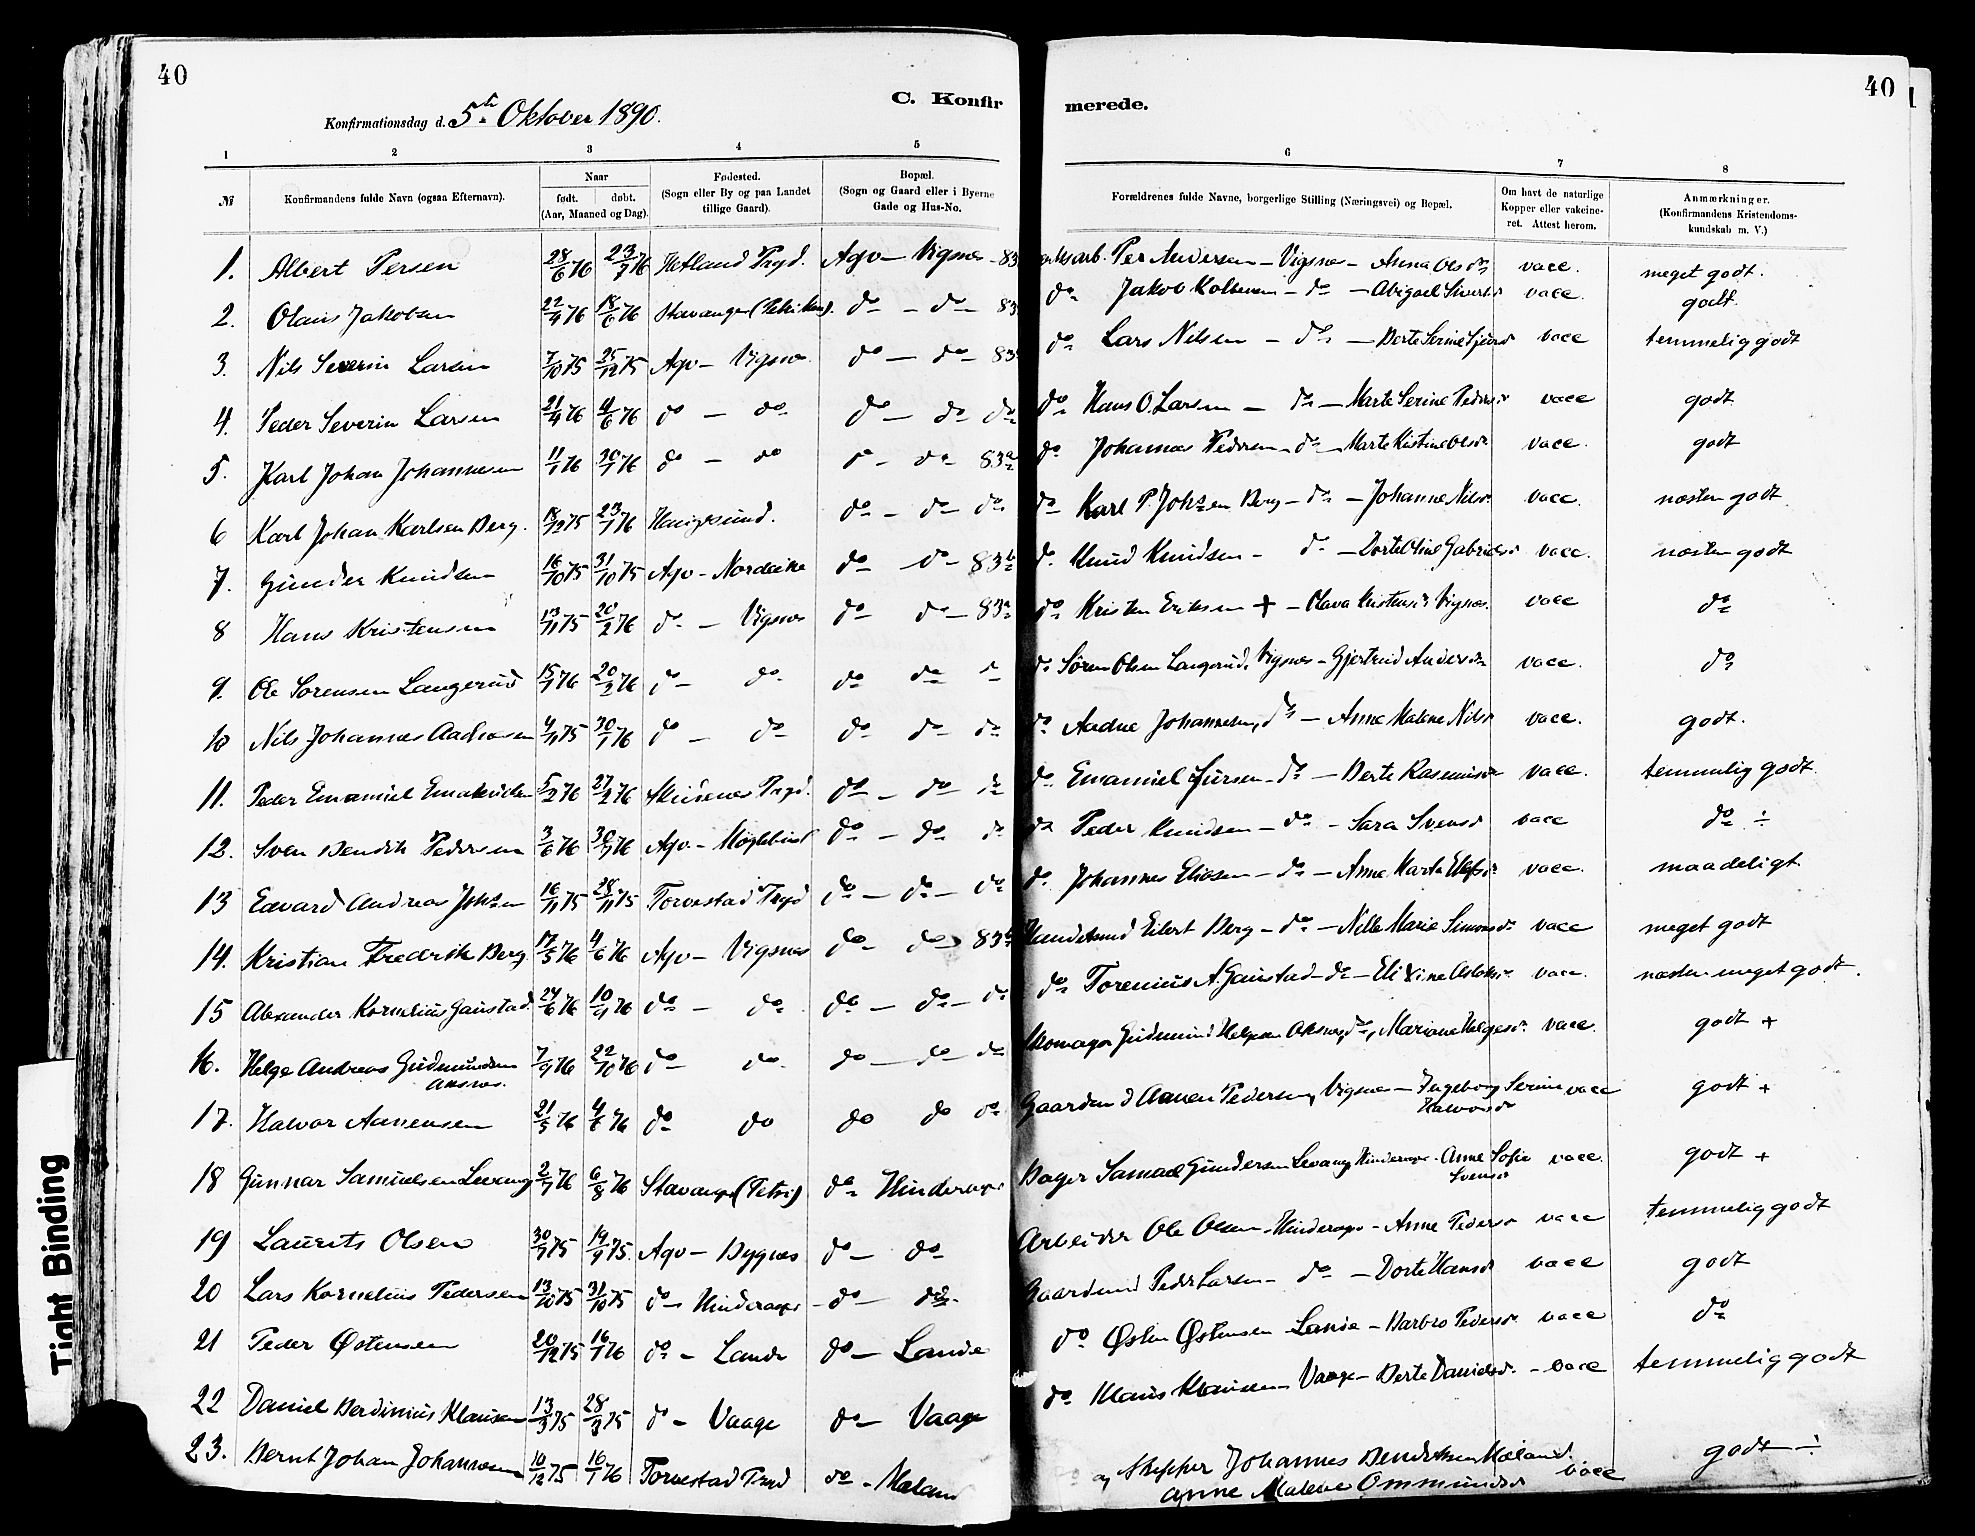 40
40
C. Konfir merede.
Konfirmationsdag d. 5te Oktober 1890.
1 2 3 4 5 6 7 8
№ Konfirmandens fulde Navn (ogsaa Efternavn). Naar født. døbt. (Aar, Maaned og Dag). Fødested. (Sogn eller By og paa Landet tillige Gaard). Bopæl. (Sogn og Gaard eller i Byerne Gade og Hus-No. Forældrenes fulde Navne, borgerlige Stilling (Næringsvei) og Bopæl. Om havt de naturlige Kopper eller vakcineret. Attest herom. Anmærkninger. (Konfirmandens Kristendomskundskab m. V.)
1. Albert Persen 28/6 76 23/7 76 Hetland Prgd. Agv— Vigsnæs 83 Per Andersen — Vigsnæs — Anna Olsdr vacc. meget godt.
2. Olaus Jakobsen 22/4 76 18/6 76 Stavanger (Petri) do — do 83 do Jakob — do — Abigael vacc. godt.
3. Nils Severin Larsen 7/10 75 25/12 75 Agv— Vigsnæs do — do — 83 do Lars Nilsen — do — Berte Serine vacc temmelig godt
4. Peder Severin Larsen 21/4 76 4/6 76 do — do do — do do do Hans O. Larsen — do — Marte Serine Pedersdr vacc godt
5. Karl Johan Johannesen 11/1 76 30/1 76 do — do do 83a do Johannes Pedersen — do — Marte Kistine Olsdr vacc. godt
6 Karl Johan Karlsen Berg. 18/12 75 23/1 76 Haugesund. do — do — do do Karl P. Johsen Berg — do — Johanne Nilsdr vacc. næsten godt
7. Gunder Knudsen 16/10 75 31/10 75 Agv— do do — 83b do Knud Knudsen — do — Dorte Oline Gabrielsdr vacc. næsten godt
8 Hans Kristensen 13/11 75 20/2 76 do — Vigsnæs do do — 83a do Kristen Eriksen + — Olava Vigsnæs. vacc do
9. Ole Sørensen Langerud 15/1 76 20/2 76 do — do do do do Søren Olsen Langerud, Vigsnæs — Gjertrud Andersdr vacc. do
10 Nils Johannes Aadnesen 4/11 75 30/1 76 do — do do do do do Aadne Johannesen, do — Anne Malene Nilsdr vacc. godt.
11. Peder Emanuel Emanuelsen 5/2 76 27/2 76 Skudenes Prgd. do — do do do Emanuel — do — Berte Rasmusdr vacc. temmelig godt
12. Sven Bendik Pedersen 3/6 76 30/7 76 Agv. — do — do do do Peder Knudsen — do — Sara Svensdr vacc do ÷
13 Edvard Andreas Johsen 16/11 75 28/11 75 Torvestad Prgd do — do — do do Johannes Eliasen — do — Anne Marta vacc. maadeligt
14. Kristian Fredrik Berg 17/5 76 4/6 76 Agv— Vigsnæs do — do 83b Eilert Berg — do — Nille Marie Simonsdr vacc meget godt
15 Alexander Kornelius Gaustad. 24/6 76 10/9 76 do — do do — do — do do Torenius A. Gaustad — do — vacc. næsten meget godt.
16. Helge Andreas Gudmundsen Aksnes. 7/9 76 22/10 76 do — do do — do — do Skomager Gudmund Helgesen Aksnes, do, Mariane Helgesdr vacc. godt +
17. Halvor Aanensen 21/5 76 4/6 76 do do do do do Gaardmd Aanen Pedersen, Vigsnæs — Ingeborg Serine Halvorsdr vacc godt +
18 Gunnar Samuelsen Levang 2/7 76 6/8 76 Stavanger (Petri) do Hinderaker Bager Samuel Gundersen Levang Hinderaker — Anne Sofie Svensdr vacc. godt +
19 Laurits Olsen 30/7 75 19/9 75. Agv— Bygnæs do — do Arbeider Ole Olsen — Hinderaker — Anne Pedersdr vacc temmelig godt
20 Lars Kornelius Pedersen 13/10 75 31/10 75 do — Hinderaker — do — do Gaardmd Peder Larsen — do — Dorte Hansdr vacc godt
21 Peder Østensen 20/12 75 16/1 76 do — Lande do — Lande do Østen Østensen Lande — Barbro Pedersdr vacc do
22 Daniel Berdinius Klausen 13/3 75 28/3 75 do — Vaage do — Vaage do Klaus Klausen Vaage — Berte Danielsdr — vacc temmelig godt
23. Bernt Johan Johannesen 10/12 75 16/1 76 Torvestad Prgd do — Mæland Skipper Johannes Bendiksen Mæland. vacc godt ÷
og Anne Malene Ommundsdr
Tight Binding